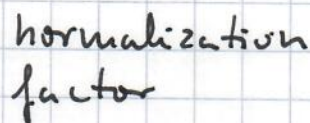 normalization
factor